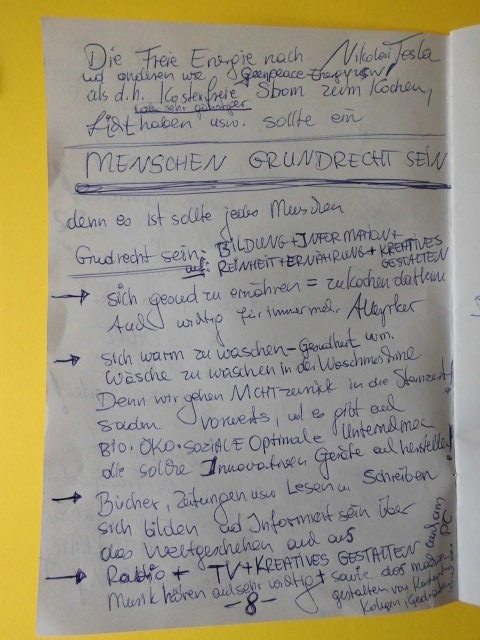 Die Freie Energie nach Nikolai Tesla
und anderen wie Greenpeace-Energy usw.
als d.h. Kostenfreie Strom zum Kochen,
oder sehr günstiger
Licht haben usw. sollte ein
MENSCHEN GRUNDRECHT SEIN
denn es ist sollte jedes Menschen
Grudrecht sein: BILDUNG + INFORMATION +
auf: REINHEIT + ERNÄHRUNG + KREATIVES GESTALTEN
→ sich gesund zu ernähren = zu kochen daheim
Auch wichtig für immer mehr Allergiker
→ sich warm zu waschen - Gesundheit usw.
Wäsche zu waschen in der Waschmaschine
Denn wir gehen NICHT zurück in die Steinzeit!
sondern vorwerts, und es gibt auch
BIO-ÖKO-SOZIALE Optimale Unternehmen
die solche Innovativen Geräte auch herstellen!
→ Bücher, Zeitungen usw Lesen u. Schreiben
sich bilden und Informiert sein über
das Weltgeschehen auch aus
→ Radio + TV + KREATIVES GESTALTEN auch am PC
Musik hören auch sehr wichtig + sowie das
gestalten von
- 8 -